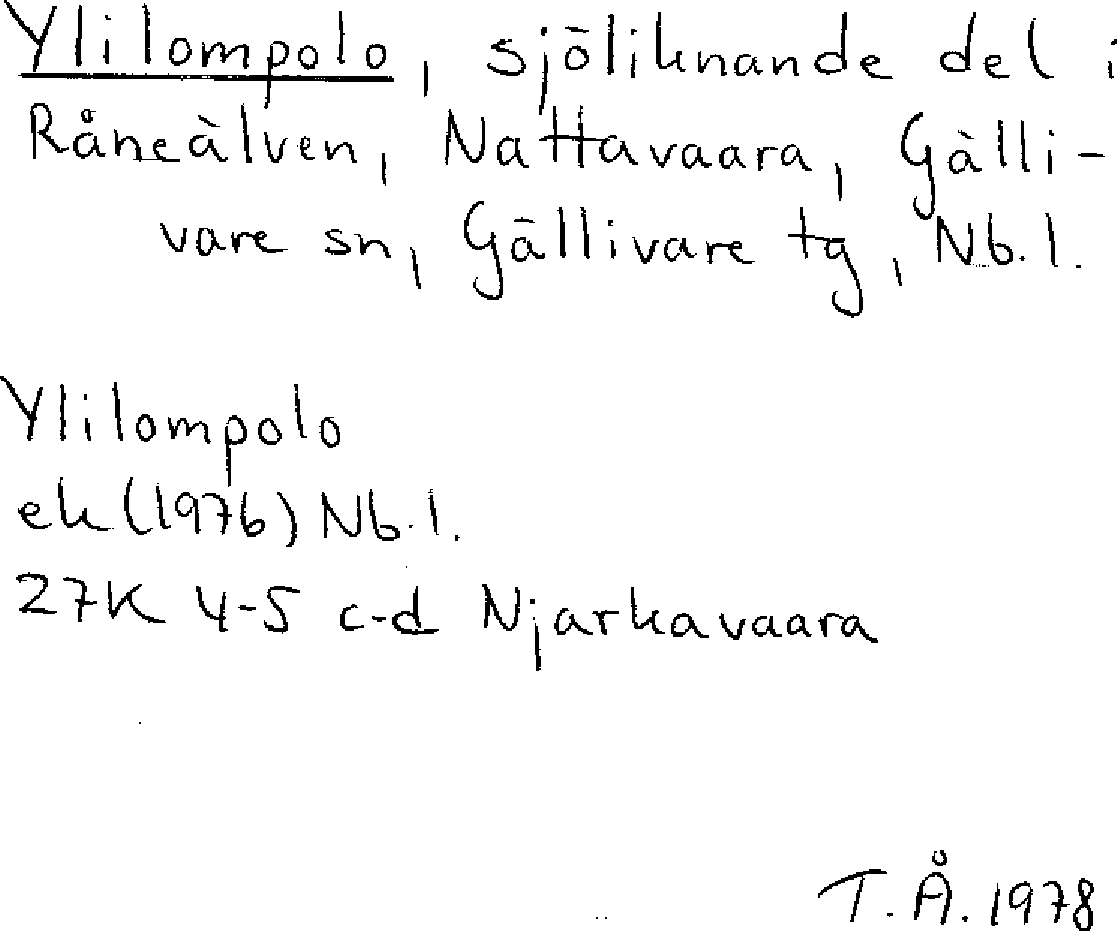 Ylilompolo, sjöliknande del i
Råneälven, Nattavaara, Gälli-
vare sn, Gällivare tg, Nb.l.
Ylilompolo
ek (1976) Nb.l.
27K 4-5 c-d Njarkavaara
T.Å. 1978